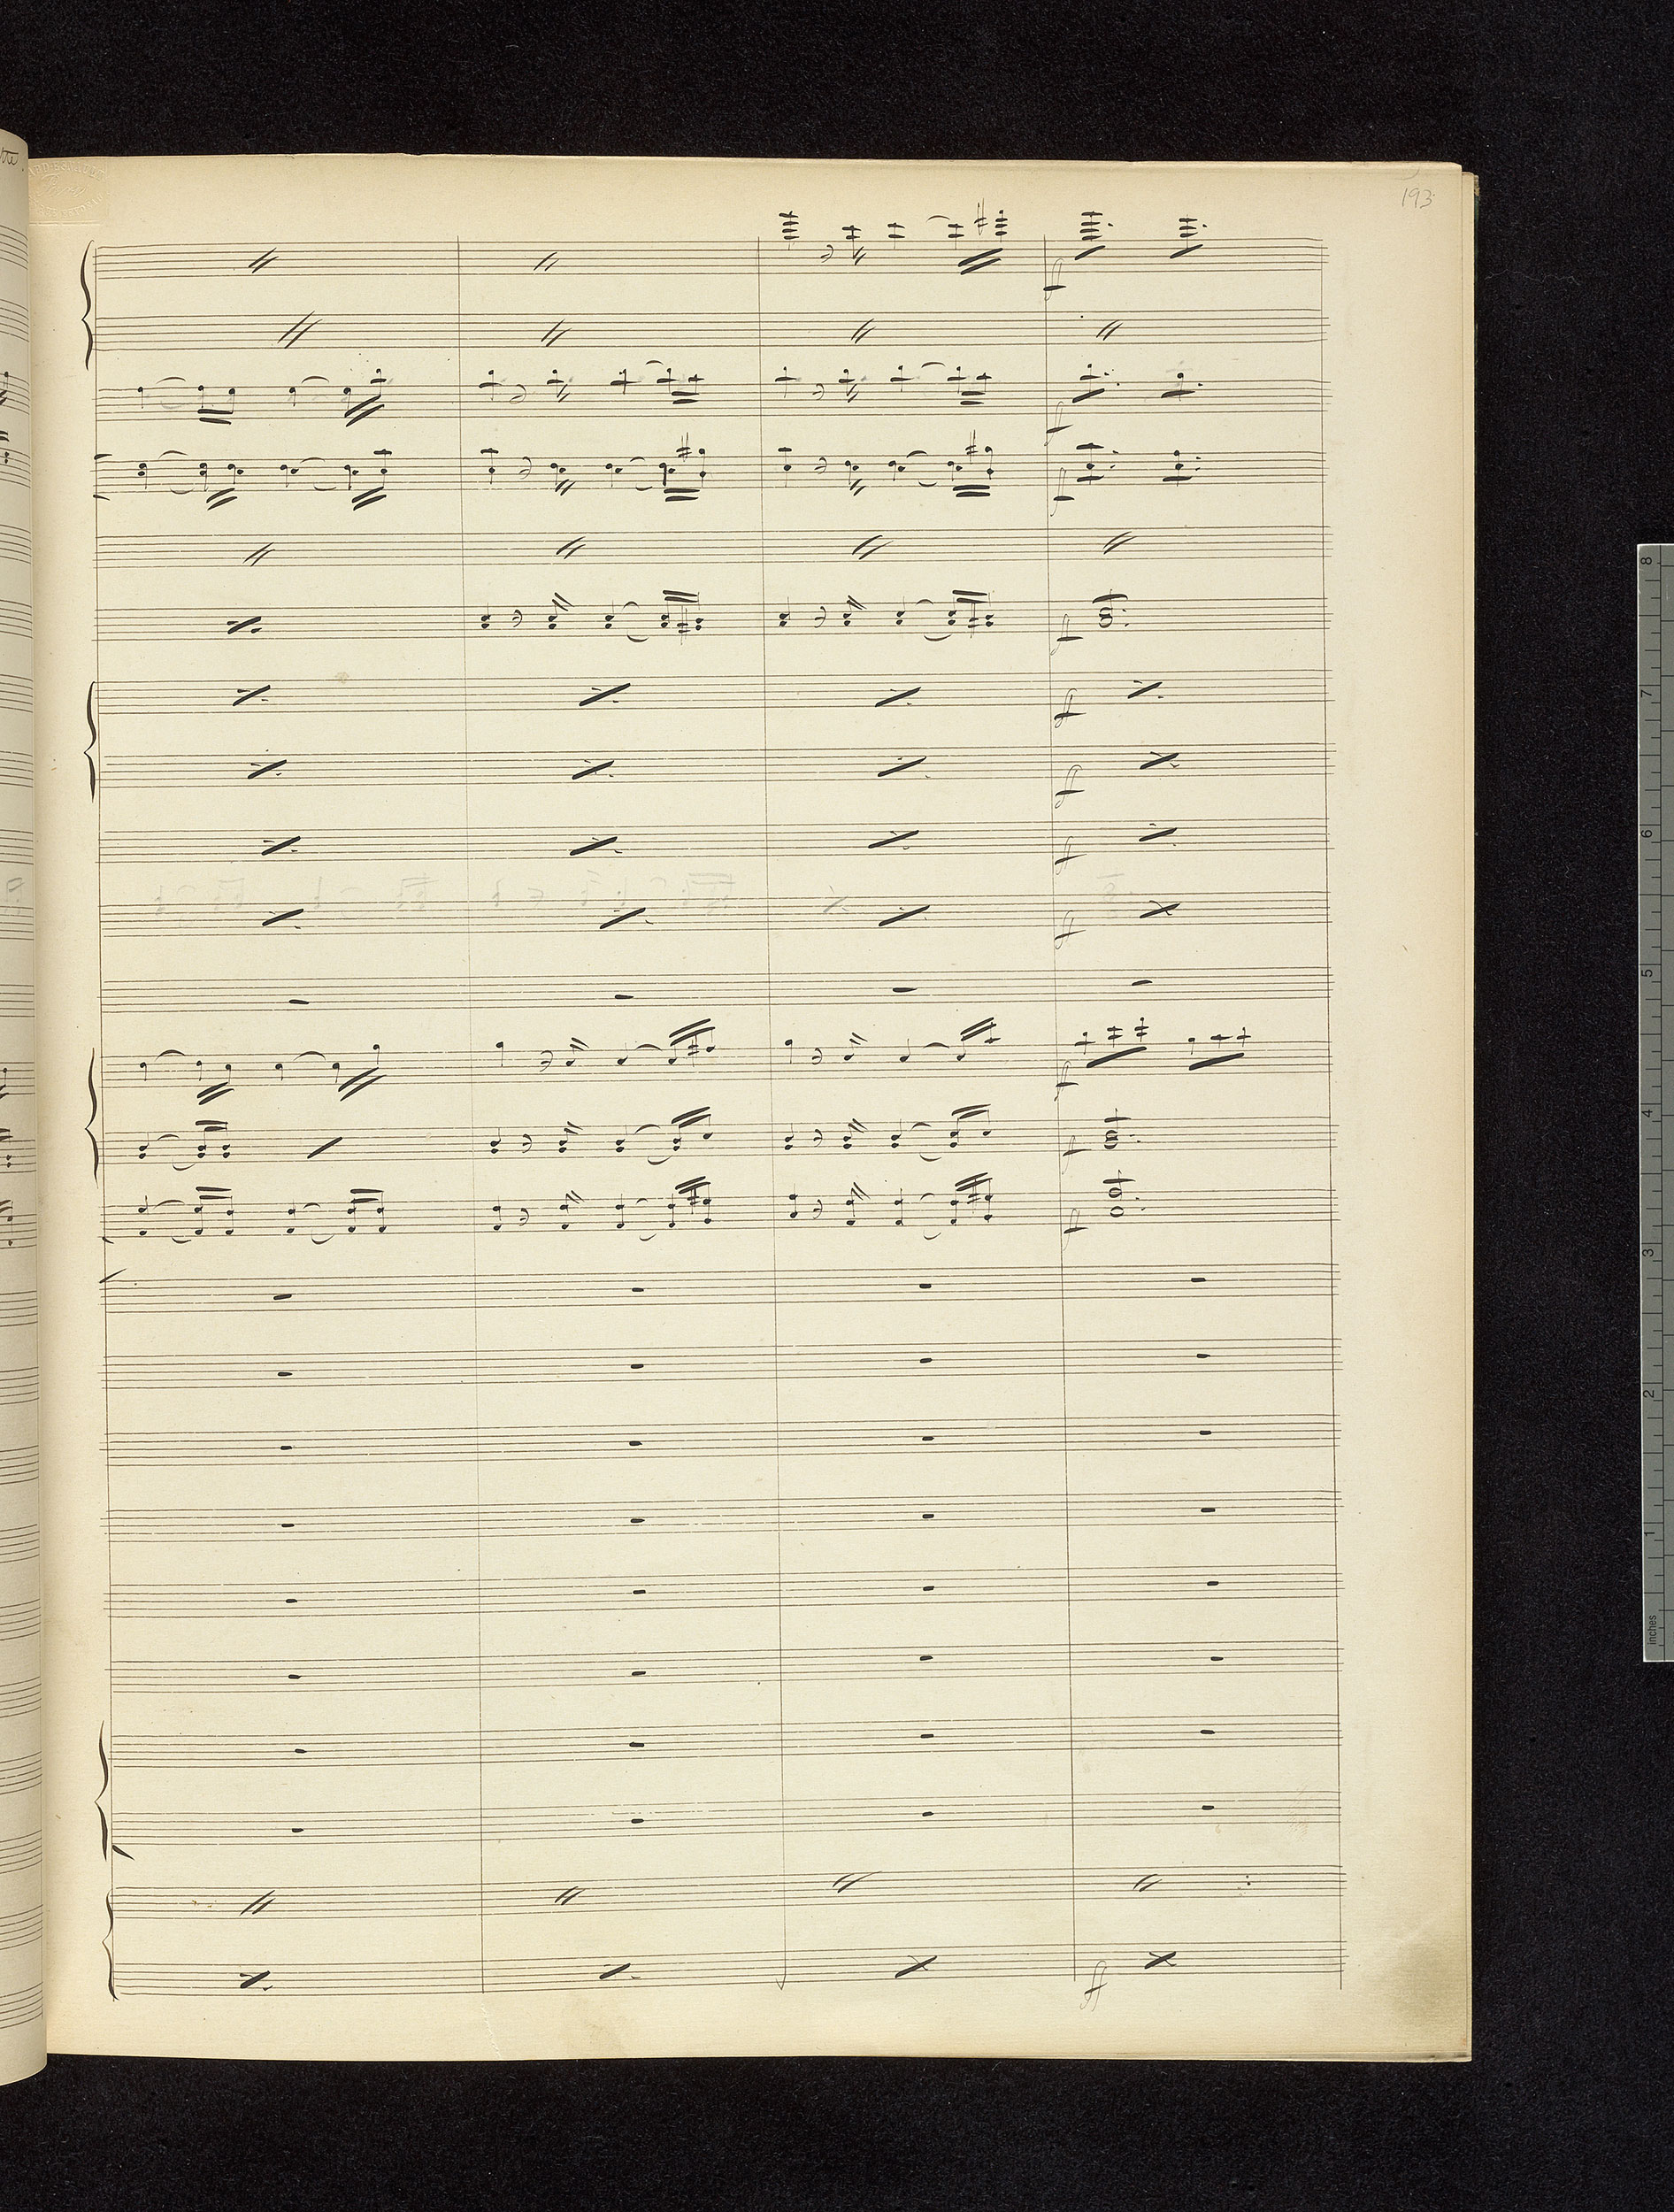 193
ff
ff
ff
ff
ff
ff
ff
ff
ff
ff
ff
ff
8
7
6
5
4
3
2
1
inches